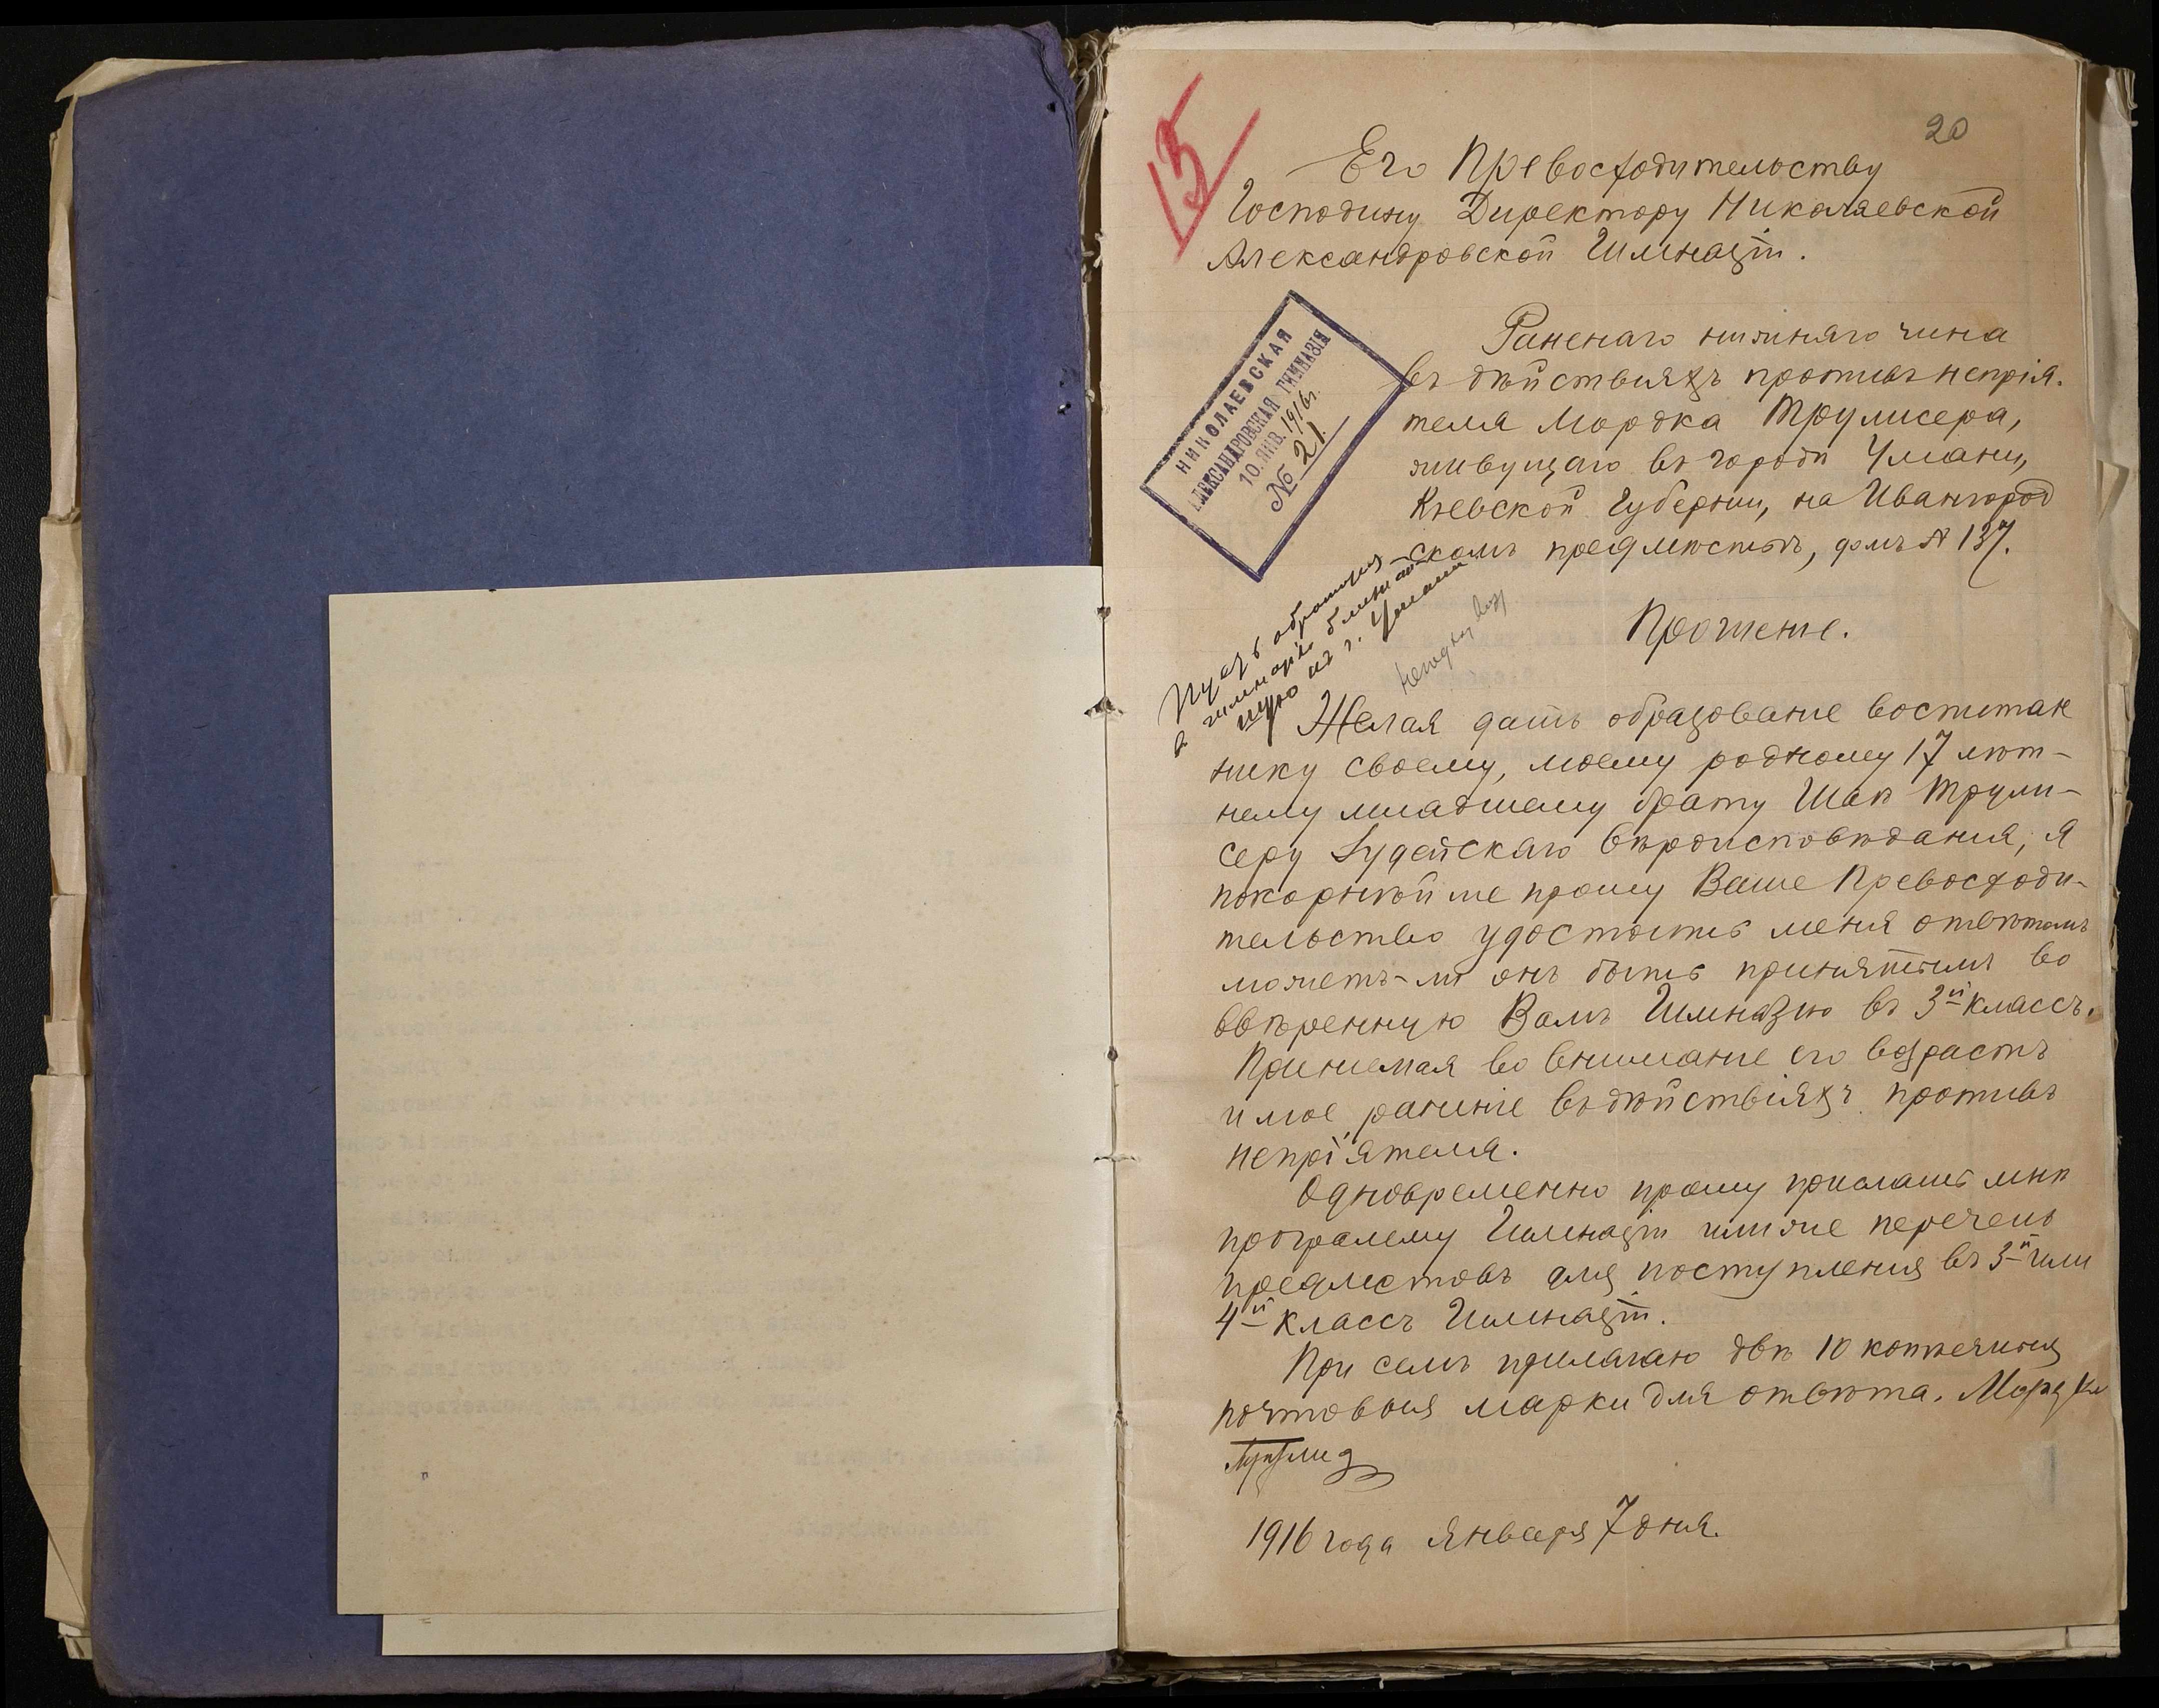 20
15
Его Превосходительству
Господину Директору Николаевской
Александровской Гимназіи.
НИКОЛАЕВСКАЯ
АЛЕКСАНДРОВСКАЯ ГИМНАЗІЯ
10. ЯНВ. 1916 г.
№ 21.
Раненаго нижняго чина
въ дѣйствияхъ противъ неприя-
теля Мордка Трулисера,
живущаго въ городѣ Умани,
Кіевской Губерніи, на Ивангород
-скомъ предмѣстьѣ, домъ № 137.
Пусть обратится
в гимназію ближай
шую из г. Умани
Прошение.
Желая дать образование воспитан
нику своему, моему родному 17 лѣт-
нему младшему брату Шаѣ Трули-
серу Іудейскаго вѣроисповѣдания, я
покорнѣйше прошу Ваше Превосходи-
тельство удостоить меня отвѣтомъ
можетъ-ли онъ быть принятымъ во
ввѣренную Вамъ Гимназию въ 3й классъ.
Принемая во внимание его возрастъ
и мое ранение въ дѣйствіяхъ противъ
непріятеля.
Одновременно прошу прислать мнѣ
программу Гимназіи или же перечень
предметовъ для поступления въ 3й или
4й классъ Гимназіи.
При семъ прилагаю двѣ 10 копѣечныя
почтовыя марки для отвѣта. Мордко
1916 года Января 7 дня.